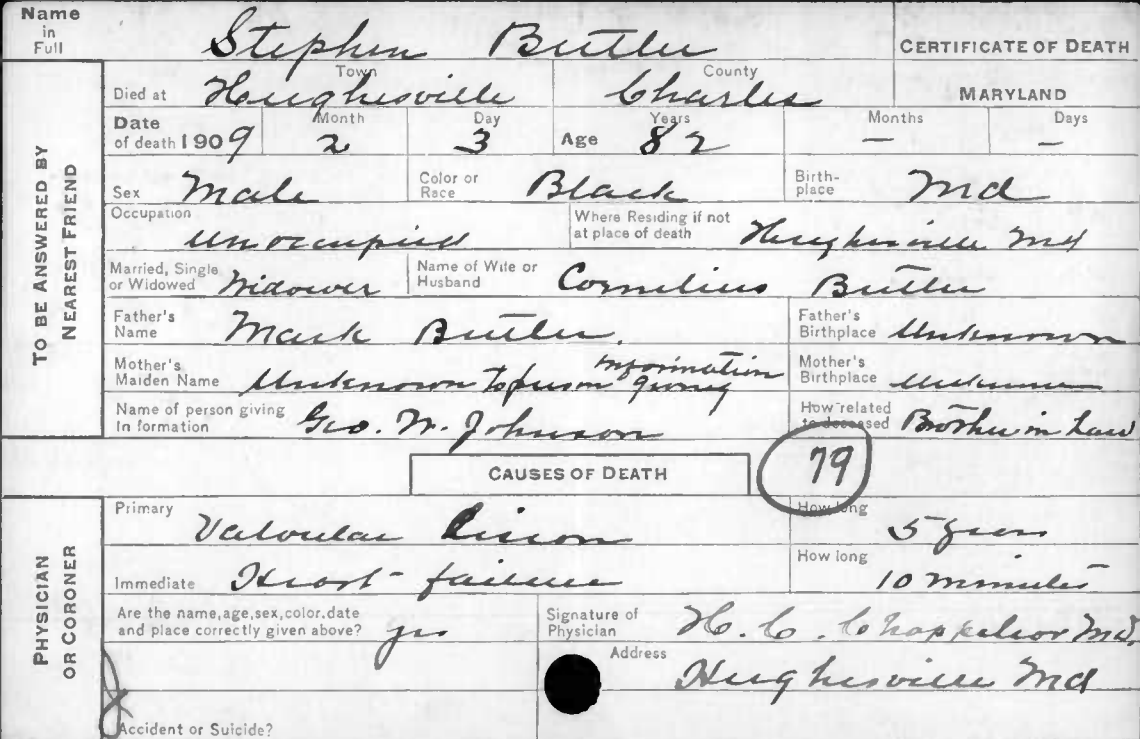 Name in Full Stephen Butler
CERTIFICATE OF DEATH
Died at Town Hughesville County Charles MARYLAND
Date of death 1909 Month 2 Day 3 Age Years 82 Months – Days –
Sex Male Color or Race Black Birthplace Md
Occupation Unoccupied Where Residing if not at place of death Hughesville Md
Married, Single or Widowed Widower Name of Wife or Husband Cornelius Butler
Father's Name Mark Butler. Father's Birthplace Unknown
Mother's Maiden Name Unknown to person giving information Mother's Birthplace Unknown
Name of person giving In formation Geo. W. Johnson How related to deceased Brother in Law
TO BE ANSWERED BY NEAREST FRIEND
CAUSES OF DEATH 79
Primary Valvular Lesion How long 5 years
Immediate Heart failure How long 10 minutes
Are the name, age, sex, color, date and place correctly given above? yes Signature of Physician H. C. Chappelear Md.
Address Hughesville Md
Accident or Suicide?
PHYSICIAN OR CORONER